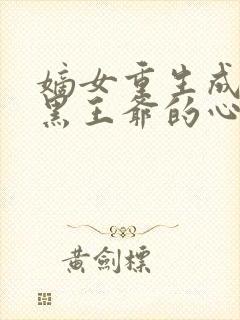 嫡女重生成
黑王爷的心
黄劍標